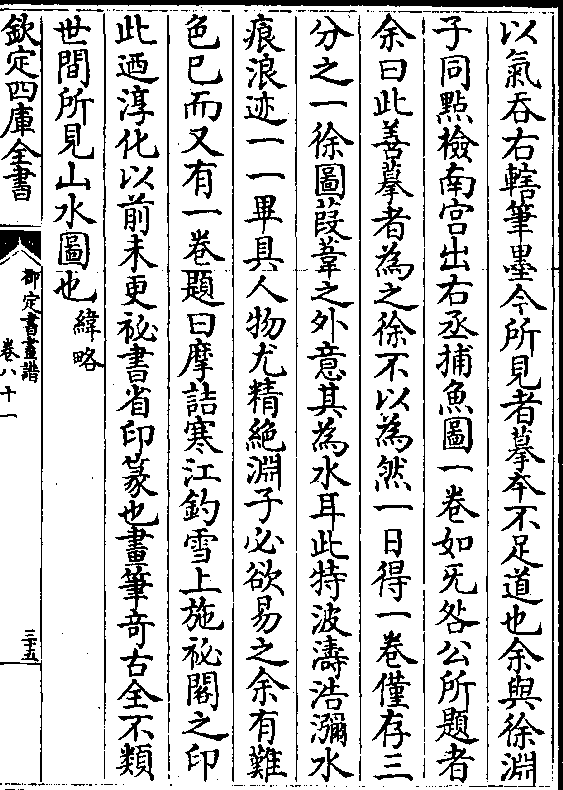 以氣吞右轄筆墨今所見者摹夲不足道也余與徐淵
子同㸃檢南宫出右丞捕魚圖一卷如旡咎公所題者
余曰此善摹者為之徐不以為然一日得一卷僅存三
分之一徐圖葭葦之外意其為水耳此特波濤浩瀰水
痕浪迹一一畢具人物尤精絶淵子必欲易之余有難
色已而又有一卷題曰摩詰寒江釣雪上施祕閣之印
此迺淳化以前未更祕書省印篆也畫筆竒古全不類
世間所見山水圖也緯略
欽定四庫全書
御定書畫譜
卷八十一
三十五